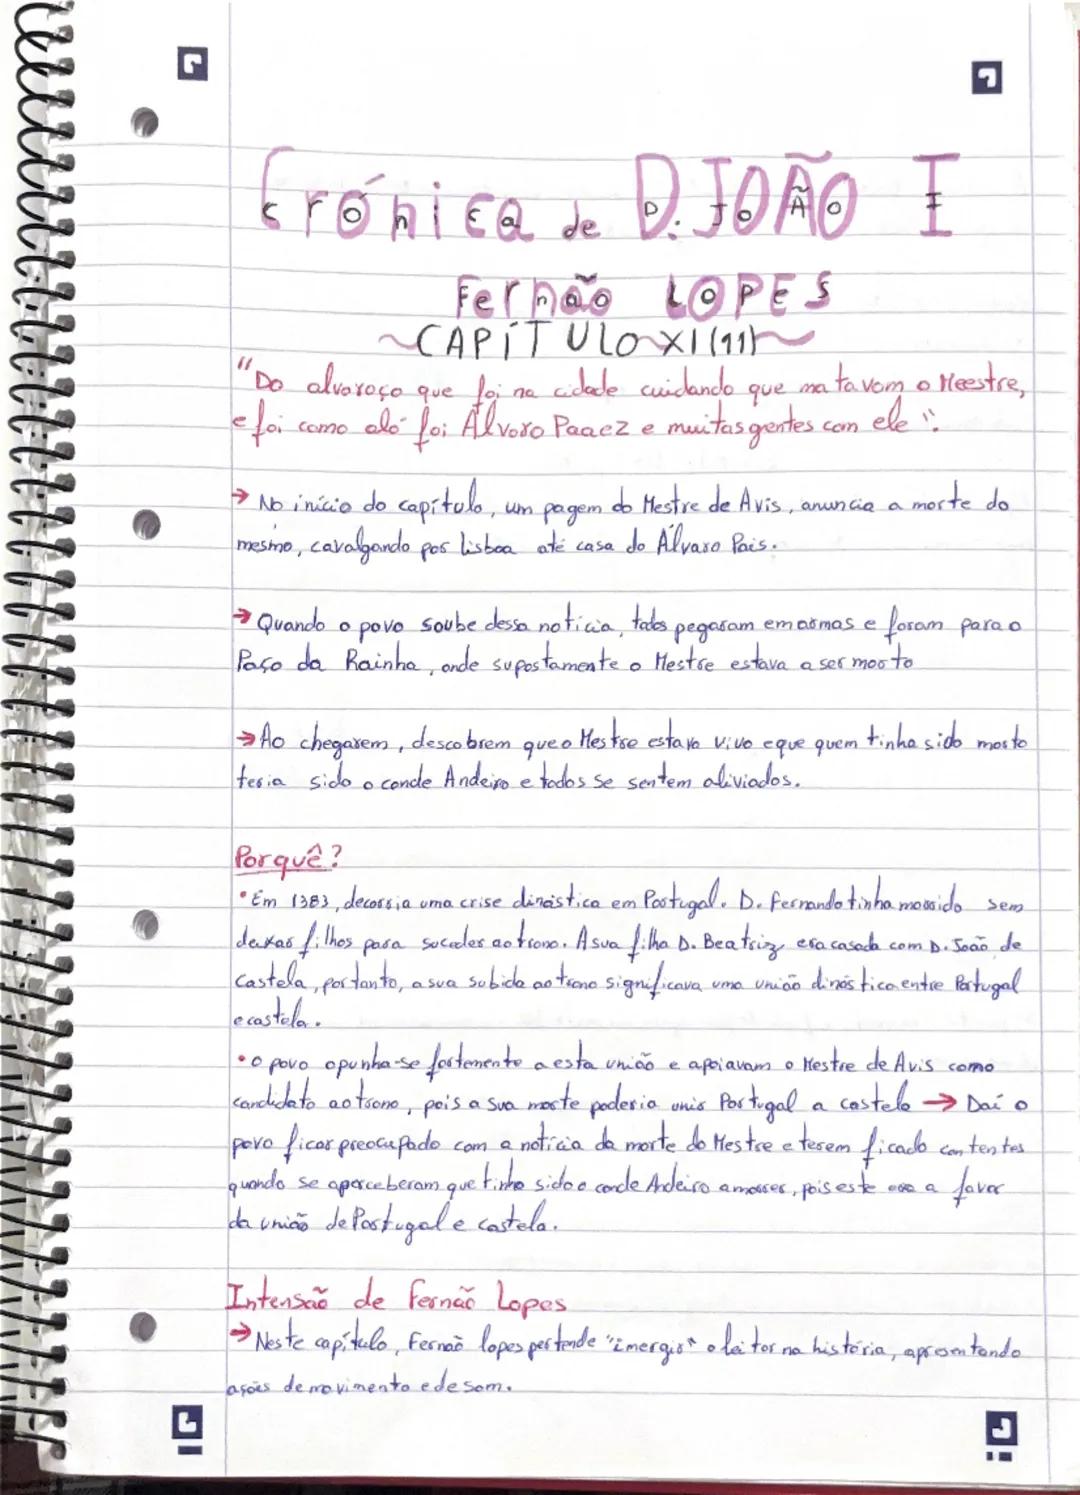 Crónica de D. JOÃO I
Fernão LOPES
~CAPÍTULO XI (11)~
"Do alvoroço que foi na cidade cuidando que matavom o Meestre,
e foi como aló foi Álvoro Paaez e muitas gentes com ele".
→ No início do capítulo, um pagem do Mestre de Avis, anuncia a morte do
mesmo, cavalgando por lisboa até casa do Álvaro Pais.
→ Quando o povo soube dessa notícia, todos pegaram em armas e foram para o
Paço da Rainha, onde supostamente o Mestre estava a ser morto
→ Ao chegarem, descobrem que o Mestre estava vivo e que quem tinha sido morto
teria sido o conde Andeiro e todos se sentem aliviados.
Porquê?
• Em 1383, decorria uma crise dinástica em Portugal. D. Fernando tinha morrido sem
deixar filhos para suceder ao trono. A sua filha D. Beatriz, era casada com D. João de
Castela, portanto, a sua subida ao trono significava uma união dinástica entre Portugal
e castela.
• o povo opunha-se fortemente a esta união e apoiavam o Mestre de Avis como
candidato ao trono, pois a sua morte poderia unir Portugal a castela → Daí o
povo ficar preocupado com a notícia da morte do Mestre e terem ficado contentes
quando se aperceberam que tinha sido o conde Andeiro a morrer, pois este era a favor
da união de Portugal e castela.
Intensão de Fernão Lopes
→ Neste capítulo, Fernão lopes pertende "imergir" o leitor na história, apresentando
ações de movimento e de som.